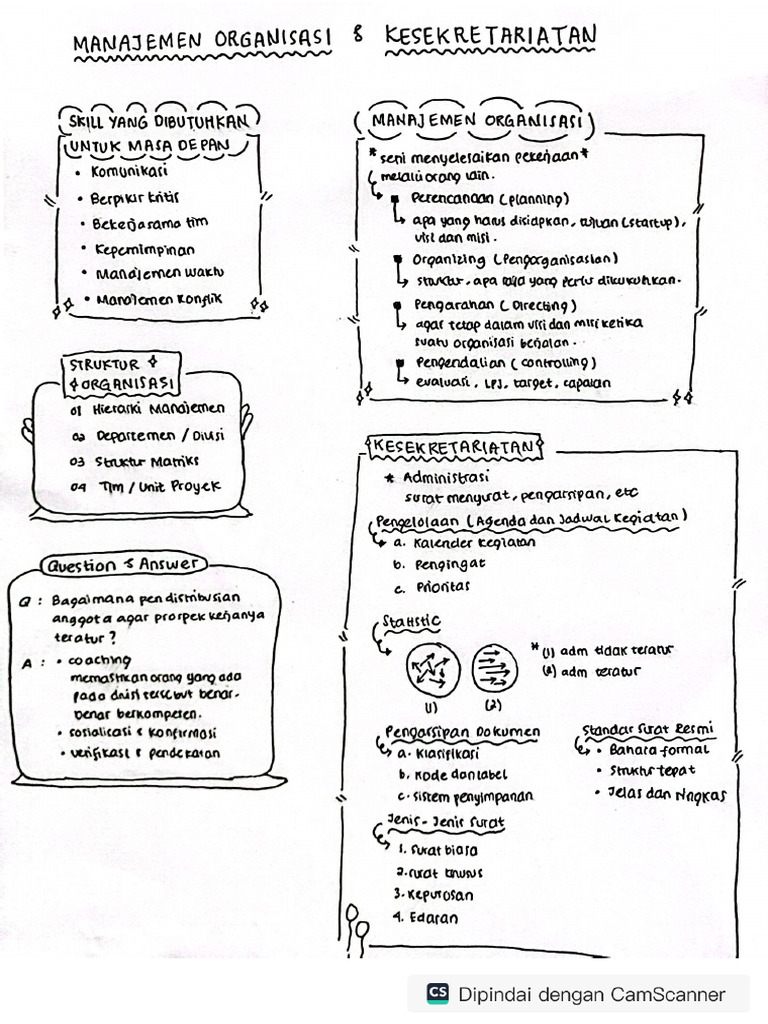 MANAJEMEN ORGANISASI & KESEKRETARIATAN
SKILL YANG DIBUTUHKAN
UNTUK MASA DEPAN
• Komunikasi
• Berpikir kritis
• Bekerjasama tim
• Kepemimpinan
• Manajemen waktu
• Manajemen Konflik
STRUKTUR
ORGANISASI
01 Hierarki Manajemen
02 Departemen / Divisi
03 Struktur Matriks
04 Tim / Unit Proyek
Question & Answer
Q : Bagaimana pendistribusian
anggota agar prospek kerjanya
teratur ?
A : • coaching
memastikan orang yang ada
pada divisi tersebut benar-
benar berkompeten.
• sosialisasi & konfirmasi
• verifikasi & pendekatan
MANAJEMEN ORGANISASI
* seni menyelesaikan pekerjaan *
melalui orang lain.
■ Perencanaan (planning)
apa yang harus disiapkan, tujuan (startup),
visi dan misi.
■ Organizing (Pengorganisasian)
struktur, apa saja yang perlu dikukuhkan.
■ Pengarahan (Directing)
agar tetap dalam visi dan misi ketika
suatu organisasi berjalan.
■ Pengendalian (controlling)
evaluasi, LPJ, target, capaian
KESEKRETARIATAN
* Administrasi
surat menyurat, pengarsipan, etc
Pengelolaan (Agenda dan Jadwal Kegiatan)
a. Kalender kegiatan
b. Pengingat
c. Prioritas
Statistic
(1) (2)
* (1) adm tidak teratur
(2) adm teratur
Pengarsipan Dokumen
a. Klasifikasi
b. Kode dan label
c. sistem penyimpanan
Standar Surat Resmi
• Bahasa formal
• Struktur tepat
• Jelas dan Ringkas
Jenis - Jenis Surat
1. surat biasa
2. surat khusus
3. Keputusan
4. Edaran
CS Dipindai dengan CamScanner